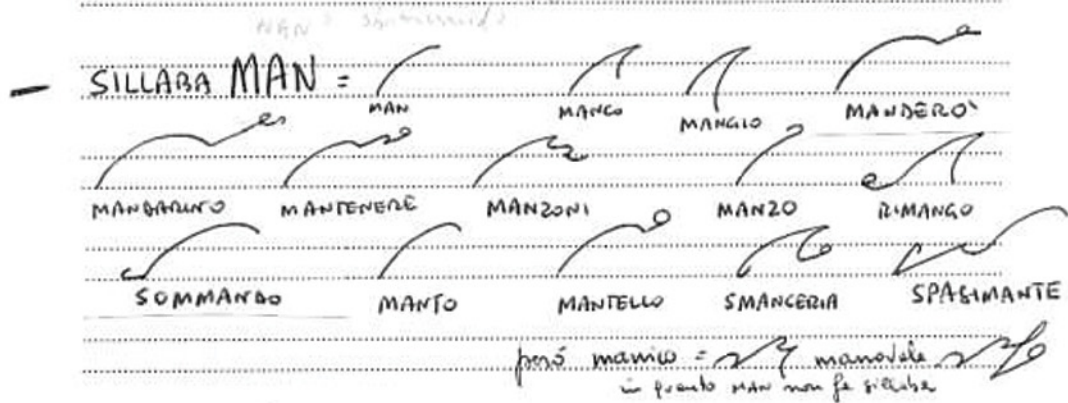 - SILLABA MAN =
MAN MANCO MANGIO MANDERÒ
MANDARINO MANTENERE MANZONI MANZO RIMANGO
SOMMANDO MANTO MANTELLO SMANCERIA SPASIMANTE
però manico = manovale
in quanto MAN non fa sillaba